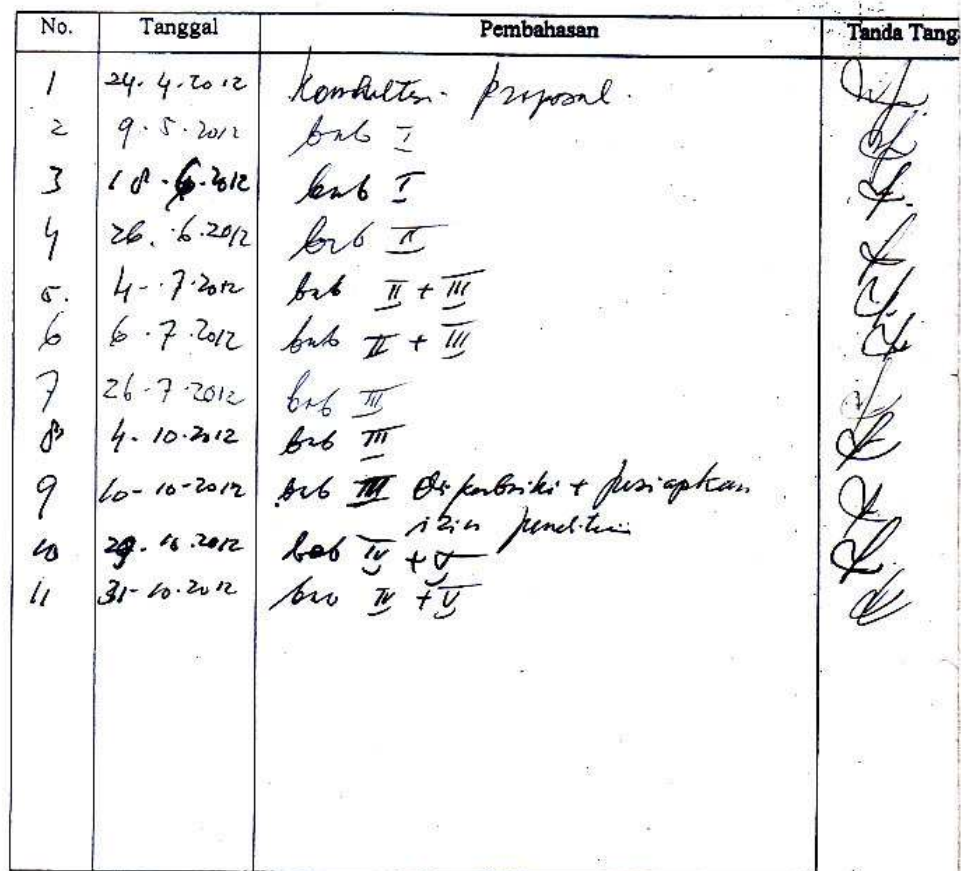 No. Tanggal Pembahasan Tanda Tang
1 24.4.2012 Konsultasi proposal.
2 9.5.2012 bab I
3 18.6.2012 bab I
4 26.6.2012 bab II
5. 4-7.2012 bab II + III
6 6.7.2012 bab II + III
7 26-7-2012 bab III
8 4-10-2012 bab III
9 10-10-2012 bab III diperbaiki + persiapkan
izin penelitian
10 29.10.2012 bab IV + V
11 31-10-2012 bab IV + V